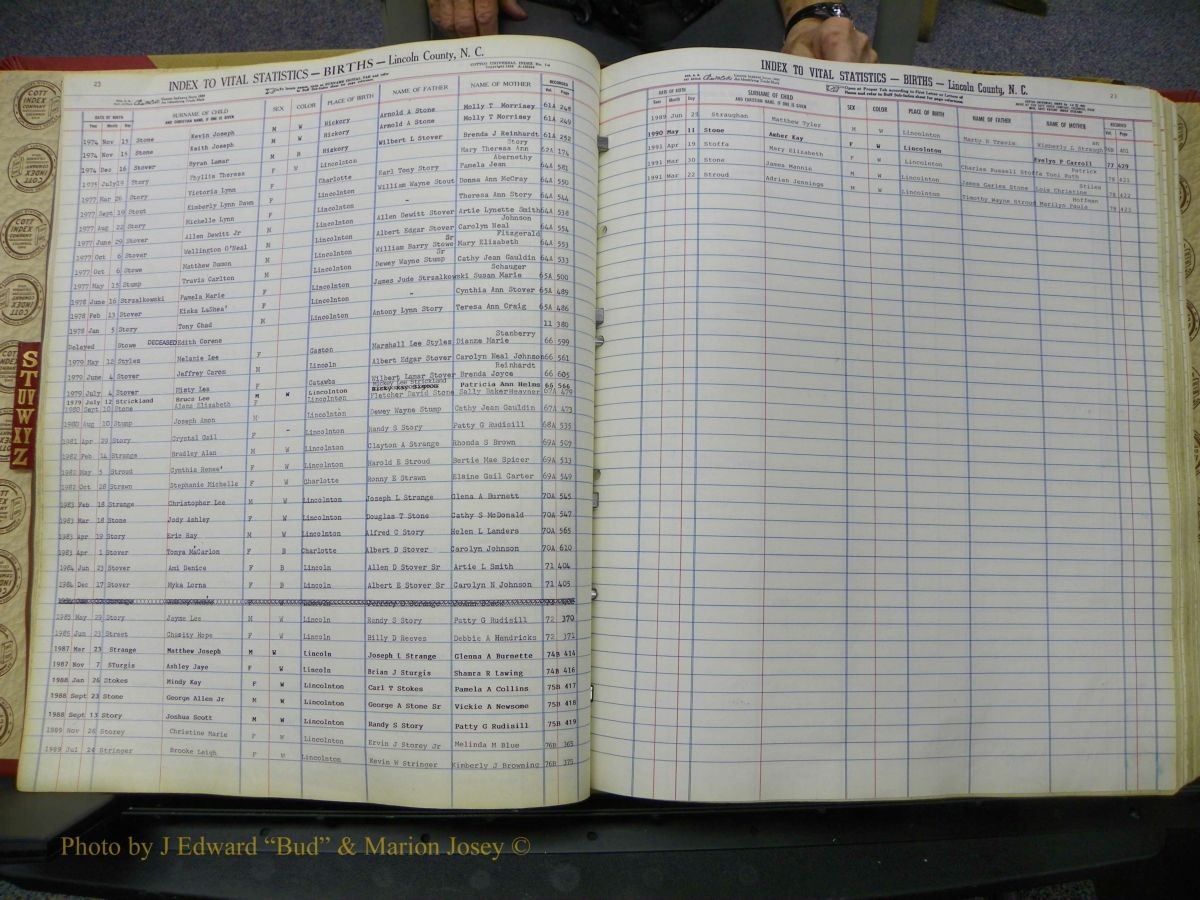 23
INDEX TO VITAL STATISTICS — BIRTHS — Lincoln County, N. C.
DATE OF BIRTH
Year Month Day
SURNAME OF CHILD
AND CHRISTIAN NAME, IF ONE IS GIVEN
SEX
COLOR
PLACE OF BIRTH
NAME OF FATHER
NAME OF MOTHER
RECORDED
Vol. Page
1974 Nov 15 Stone Kevin Joseph M W Hickory Arnold A Stone Molly T Morrisey 61A 248
1974 Nov 15 Stone Keith Joseph M W Hickory Arnold A Stone Molly T Morrisey 61A 249
1974 Dec 16 Stover Byran Lamar M B Hickory Wilbert L Stover Brenda J Reinhardt 61A 252
1975 July 19 Story Phyllis Theresa F W Lincolnton Mary Theresa Ann Story 62A 174
1977 Mar 26 Story Victoria Lynn F Charlotte Earl Tony Story Pamela Jean Abernethy 64A 581
1977 Sept 19 Stout Kimberly Lynn Dawn F Lincolnton William Wayne Stout Donna Ann McCray 64A 550
1977 Aug 22 Story Michelle Lynn F Lincolnton Theresa Ann Story 64A 544
1977 June 29 Stover Allen Dewitt Jr M Lincolnton Allen Dewitt Stover Artie Lynette Smith 64A 538
1977 Oct 6 Stover Wellington O'Neal M Lincolnton Albert Edgar Stover Sr Carolyn Neal Johnson 64A 554
1977 Oct 6 Stowe Matthew Damon M Lincolnton William Barry Stowe Sr Mary Elizabeth Fitzgerald 64A 553
1977 May 15 Stump Travis Carlton M Lincolnton Dewey Wayne Stump Cathy Jean Gauldin 64A 533
1978 June 16 Strzalkowski Pamela Marie F Lincolnton James Jude Strzalkowski Susan Marie Schauger 65A 500
1978 Feb 13 Stover Kiska LaShea' F Lincolnton - Cynthia Ann Stover 65A 489
1978 Jan 5 Story Tony Chad M Lincolnton Antony Lynn Story Teresa Ann Craig 65A 486
Delayed Stowe DECEASED Edith Corene 11 380
1979 May 12 Styles Melanie Lee F Gaston Marshall Lee Styles Dianne Marie Stanberry 66 599
1979 June 4 Stover Jeffrey Caron M Lincoln Albert Edgar Stover Carolyn Neal Johnson 66 561
1979 July 4 Stover Misty Lee F Catawba Wilbert Lamar Stover Brenda Joyce Reinhardt 66 605
1979 July 12 Strickland Bruce Lee M W Lincolnton Mickey Lee Strickland Patricia Ann Helms 66 566
1980 Sept 10 Stone Alena Elizabeth F Lincolnton Fletcher David Stone Sally Baker Heavner 67A 479
1980 Aug 10 Stump Joseph Amon M Lincolnton Dewey Wayne Stump Cathy Jean Gauldin 67A 473
1981 Apr 29 Story Crystal Gail F - Lincolnton Randy S Story Patty G Rudisill 68A 535
1982 Feb 14 Strange Bradley Alan M W Lincolnton Clayton A Strange Rhonda S Brown 69A 507
1982 May 5 Stroud Cynthia Renea' F W Lincolnton Harold E Stroud Bertie Mae Spicer 69A 513
1982 Oct 28 Strawn Stephanie Michelle F W Charlotte Ronny E Strawn Elaine Gail Carter 69A 549
1983 Feb 18 Strange Christopher Lee M W Lincolnton Joseph L Strange Glena A Burnett 70A 545
1983 Mar 18 Stone Jody Ashley F W Lincolnton Douglas T Stone Cathy S McDonald 70A 547
1983 Apr 19 Story Eric Ray M W Lincolnton Alfred C Story Helen L Landers 70A 565
1983 Apr 1 Stover Tonya MaCarlon F B Charlotte Albert D Stover Carolyn Johnson 70A 610
1984 Jun 23 Stover Ami Denice F B Lincoln Allen D Stover Sr Artie L Smith 71 404
1984 Dec 17 Stover Myka Lorna F B Lincoln Albert E Stover Sr Carolyn N Johnson 71 405
1985 May 29 Story Jayme Lee M W Lincoln Randy S Story Patty G Rudisill 72 370
1985 Jun 23 Street Chasity Hope F W Lincoln Billy D Reeves Debbie A Hendricks 72 371
1987 Mar 23 Strange Matthew Joseph M W Lincoln Joseph L Strange Glenna A Burnette 74B 414
1987 Nov 7 STurgis Ashley Jaye F W Lincoln Brian J Sturgis Shamra R Lawing 74B 416
1988 Jan 26 Stokes Mindy Kay F W Lincolnton Carl T Stokes Pamela A Collins 75B 417
1988 Sept 23 Stone George Allen Jr M W Lincolnton George A Stone Sr Vickie A Newsome 75B 418
1988 Sept 13 Story Joshua Scott M W Lincolnton Randy S Story Patty G Rudisill 75B 419
1989 Nov 26 Storey Christine Marie F W Lincolnton Ervin J Storey Jr Melinda M Blue 76B 365
1989 Jul 24 Stringer Brooke Leigh F W Lincolnton Kevin W Stringer Kimberly J Browning 76B 375
INDEX TO VITAL STATISTICS — BIRTHS — Lincoln County, N. C.
23
DATE OF BIRTH
Year Month Day
SURNAME OF CHILD
AND CHRISTIAN NAME, IF ONE IS GIVEN
SEX
COLOR
PLACE OF BIRTH
NAME OF FATHER
NAME OF MOTHER
RECORDED
Vol. Page
1989 Jun 28 Straughan Matthew Tyler M W Lincolnton Marty R Travis Kimberly L Straughan 76B 401
1990 May 11 Stone Amber Kay F W Lincolnton Evelyn P Carroll 77 429
1991 Apr 19 Stoffa Mary Elizabeth F W Lincolnton Charles Russell Stoffa Toni Ruth Patrick 78 421
1991 Mar 30 Stone James Mannin M W Lincolnton James Garies Stone Lois Christine Stiles 78 422
1991 Mar 22 Stroud Adrian Jennings M W Lincolnton Timothy Wayne Stroud Marilyn Paula Hoffman 78 423
S
T
U
V
W
Y
Z
COTT INDEX COMPANY
Photo by J Edward “Bud” & Marion Josey ©